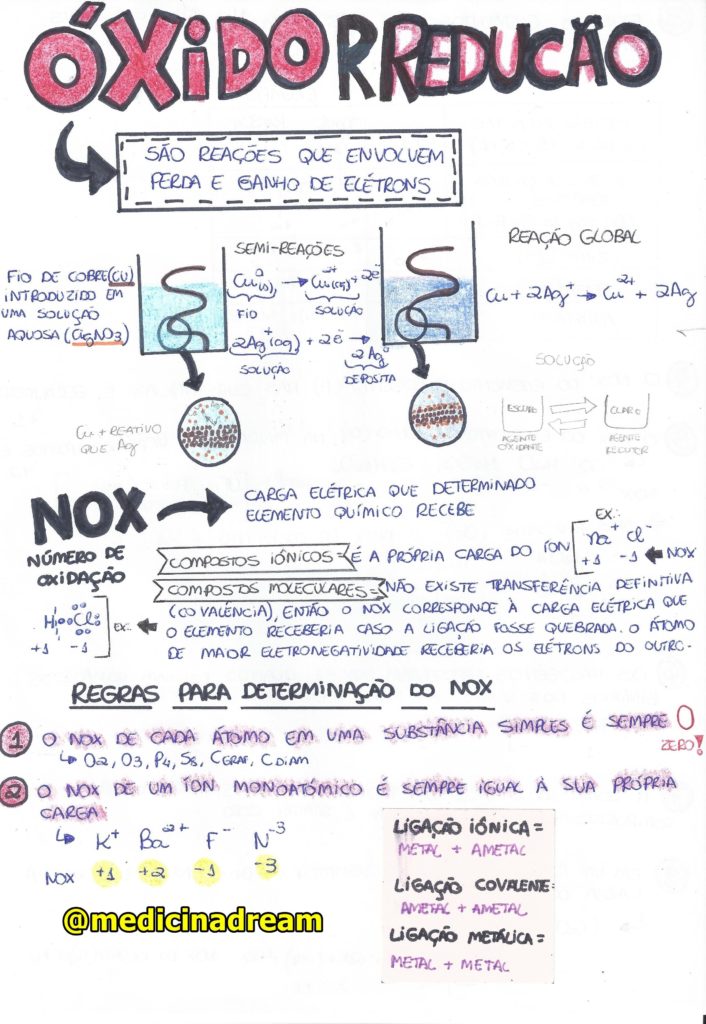 ÓXIDORREDUCÃO
SÃO REAÇÕES QUE ENVOLVEM
PERDA E GANHO DE ELÉTRONS
FIO DE COBRE (CU)
INTRODUZIDO EM
UMA SOLUÇÃO
AQUOSA (CugNO3)
SEMI-REAÇÕES
Cu⁰(s) → Cu²⁺(aq) + 2e⁻
FIO SOLUÇÃO
2Ag⁺(aq) + 2e⁻ → 2Ag⁰
SOLUÇÃO DEPOSITA
REAÇÃO GLOBAL
Cu + 2Ag⁺ → Cu²⁺ + 2Ag
Cu + REATIVO
QUE Ag
SOLUÇÃO
ESCURO CLARO
AGENTE OXIDANTE
AGENTE REDUTOR
NOX → CARGA ELÉTRICA QUE DETERMINADO
ELEMENTO QUÍMICO RECEBE
NÚMERO DE
OXIDAÇÃO
COMPOSTOS IÔNICOS = É A PRÓPRIA CARGA DO ÍON
EX:
Na⁺ Cl⁻
+1 -1 NOX
COMPOSTOS MOLECULARES = NÃO EXISTE TRANSFERÊNCIA DEFINITIVA
(COVALÊNCIA), ENTÃO O NOX CORRESPONDE À CARGA ELÉTRICA QUE
O ELEMENTO RECEBERIA CASO A LIGAÇÃO FOSSE QUEBRADA. O ÁTOMO
DE MAIOR ELETRONEGATIVIDADE RECEBERIA OS ELÉTRONS DO OUTRO.
H Cl EX:
+1 -1
REGRAS PARA DETERMINAÇÃO DO NOX
1 O NOX DE CADA ÁTOMO EM UMA SUBSTÂNCIA SIMPLES É SEMPRE 0
ZERO!
↳ O2, O3, P4, S8, CGRAF, CDIAM
2 O NOX DE UM ÍON MONOATÔMICO É SEMPRE IGUAL À SUA PRÓPRIA
CARGA
↳ K⁺ Ba²⁺ F⁻ N⁻³
NOX +1 +2 -1 -3
LIGAÇÃO IÔNICA =
METAL + AMETAL
LIGAÇÃO COVALENTE:
AMETAL + AMETAL
LIGAÇÃO METÁLICA =
METAL + METAL
@medicinadream